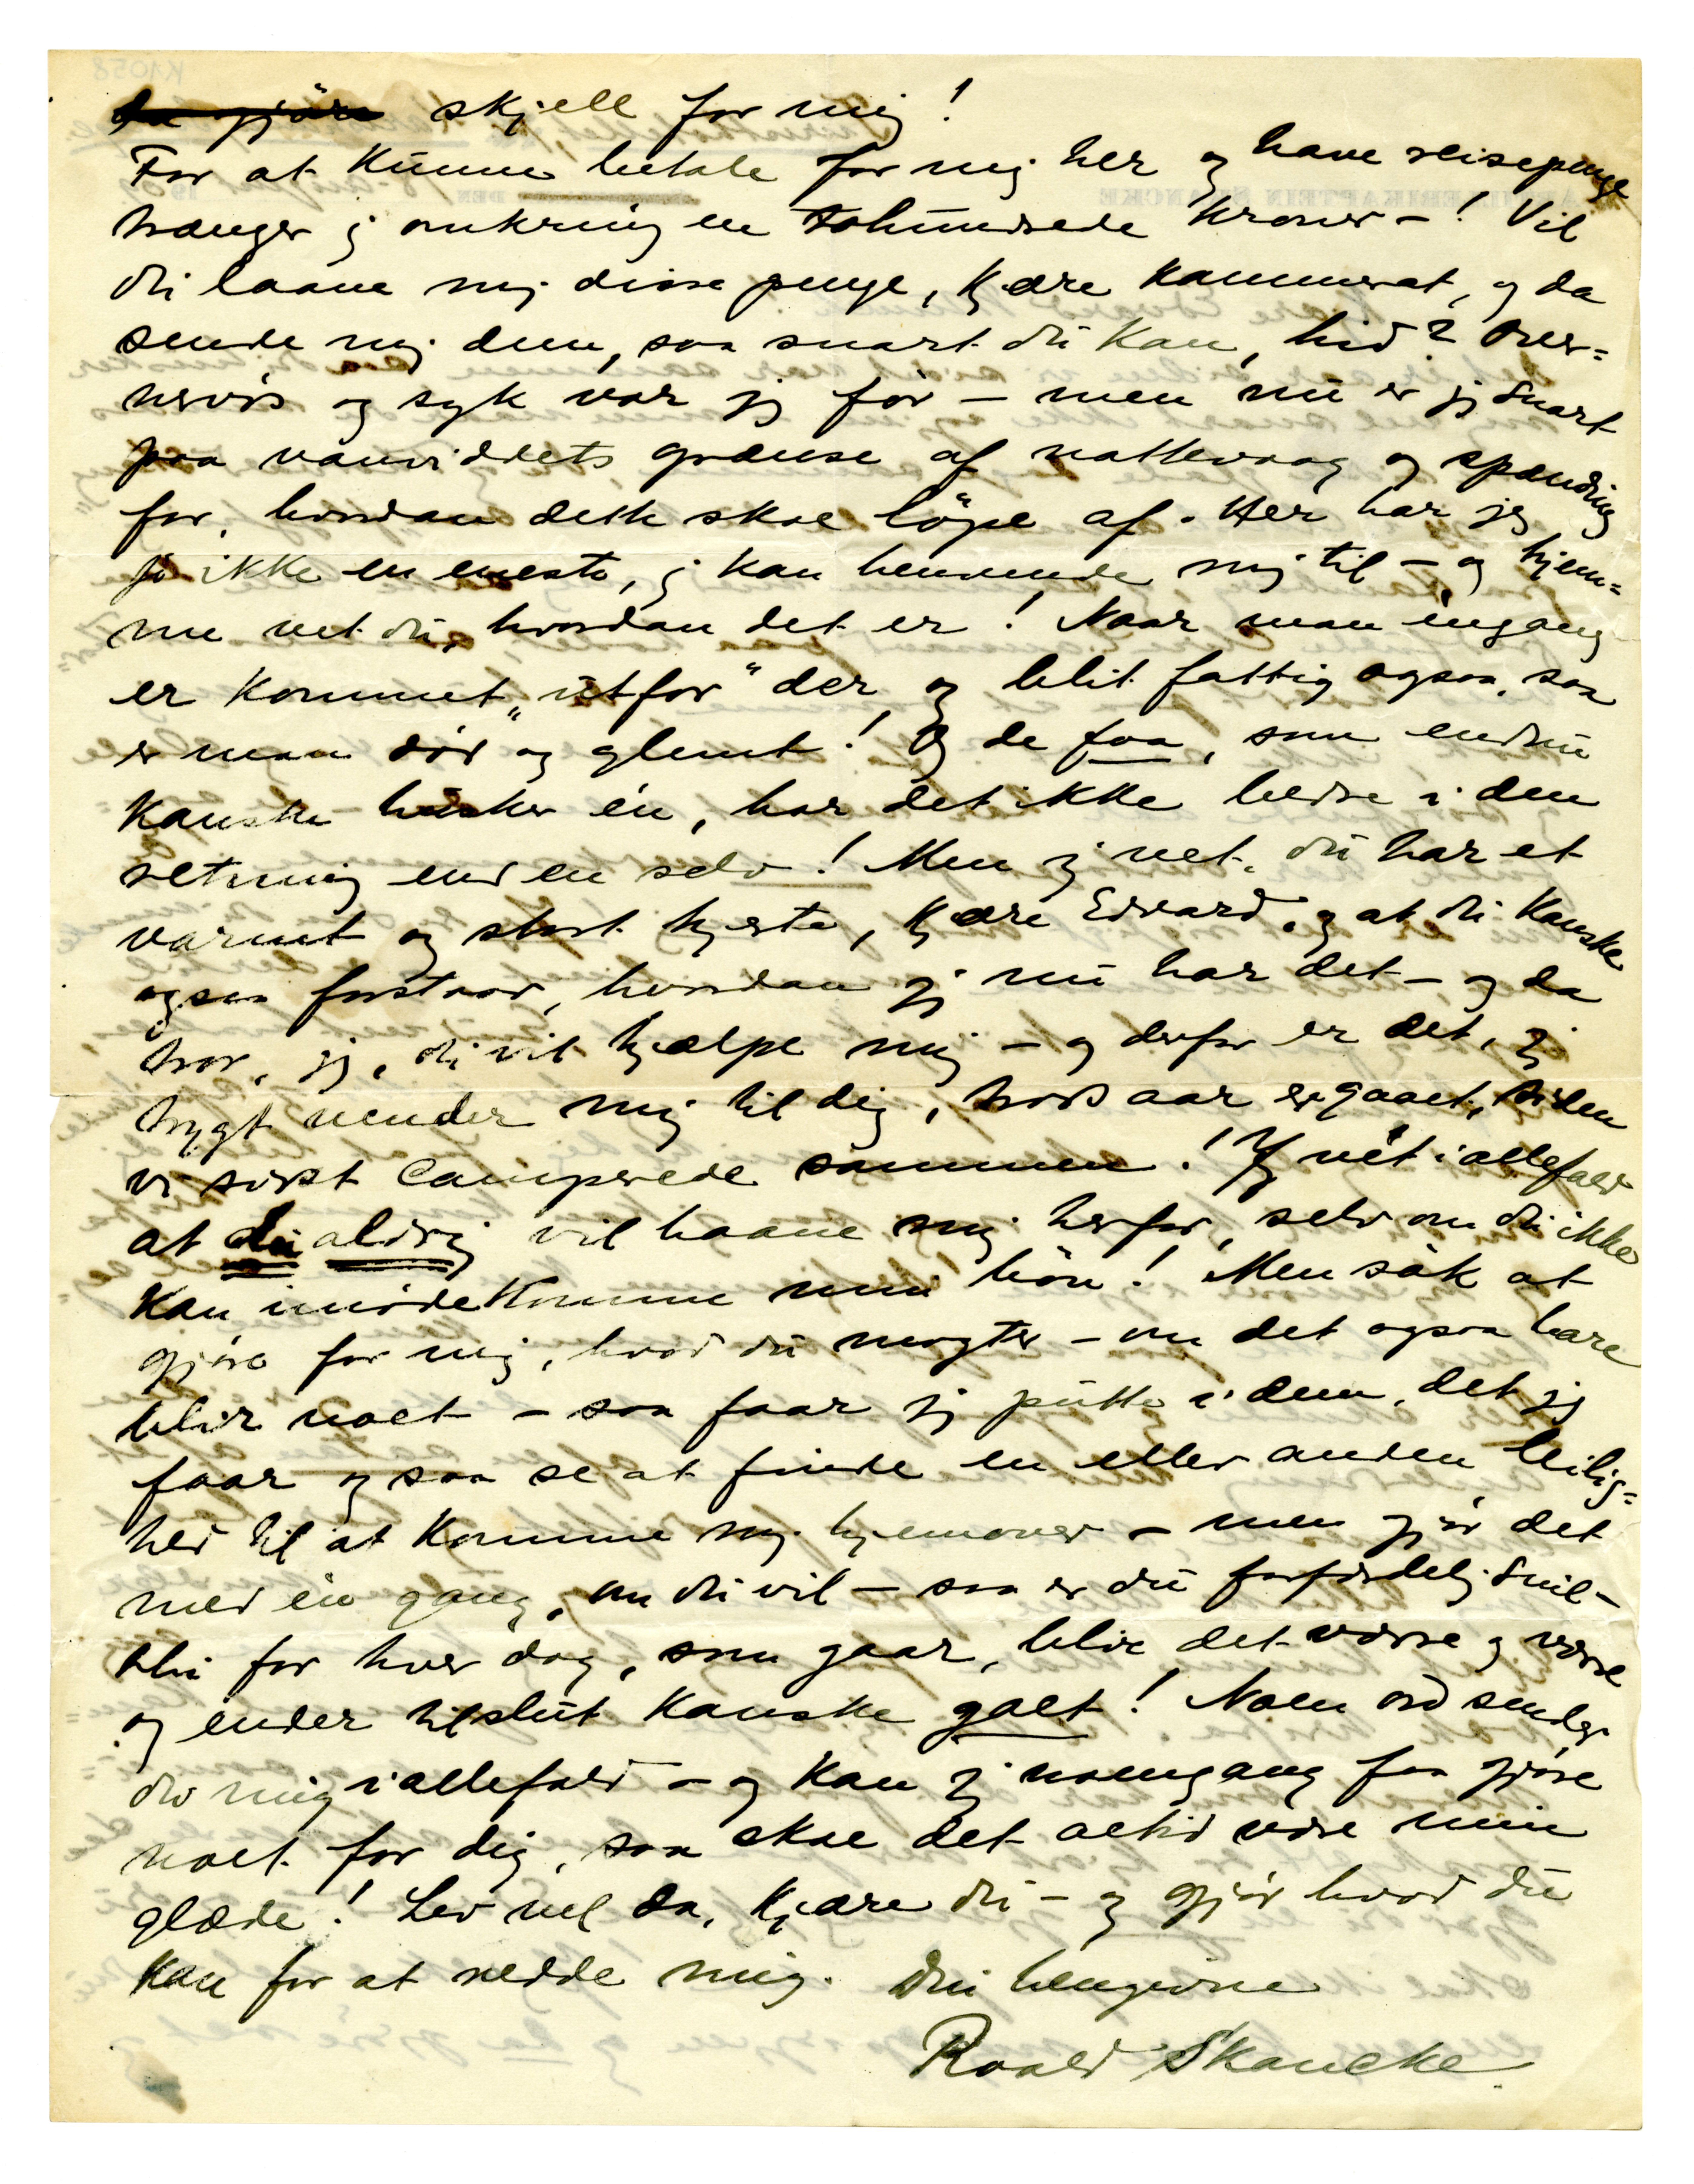 da gjöre skjell for mig!
For at kunne betale for mig her og have reisepenge
trænger jeg omkring en tohundrede kroner –! Vil
du laane mig disse penge, kjære kammerat, og da
sende mig dem, saa snart du kan, hid? Over=
nervös og syk var jeg för – men nu er jeg snart
paa vanviddets grænse af nattevaag og spænding
for, hvordan dette skal löpe af. Her har jeg
jo ikke en eneste, jeg kan henvende mig til – og hjem=
me vet du, hvordan det er! Naar man engang
er kommet „utfor" der og blit fattig ogsaa, saa
er man död og glemt! Og de faa, som endnu
kanske husker én, har det ikke bedre i den
retning end en selv! Men jeg vet, du har et
varmt og stort hjerte, kjære Edvard, og at du kanske
ogsaa forstaar, hvordan jeg nu har det – og da
tror, jeg, du vil hjælpe mig – og derfor er det, jeg
trygt vender mig til dig, trods aar er gaaet, siden
vi sidst camperede sammen! Jeg vét iallefald
at du aldrig vil haane mig herfor, selv om du ikke
kan imödekomme min bön! Men sök at
gjöre for mig, hvad du magter – om det ogsaa bare
blir noet – saa faar jeg putte i dem, det jeg
faar og saa se at finde en eller anden leilig=
hed til at komme mig hjemover – men gjör det
med én gang, om du vil – saa er du forfærdelig snil –
thi for hver dag, som gaar, blir det værre og værre
og ender tilslut kanske galt! Noen ord sender
du mig iallefald – og kan jeg noengang faa gjöre
noet for dig, saa skal det altid være min
glæde! Lev vel da, kjære du – og gjör hvad du
kan for at redde mig. Din hengivne
Roald Skancke.
K1058